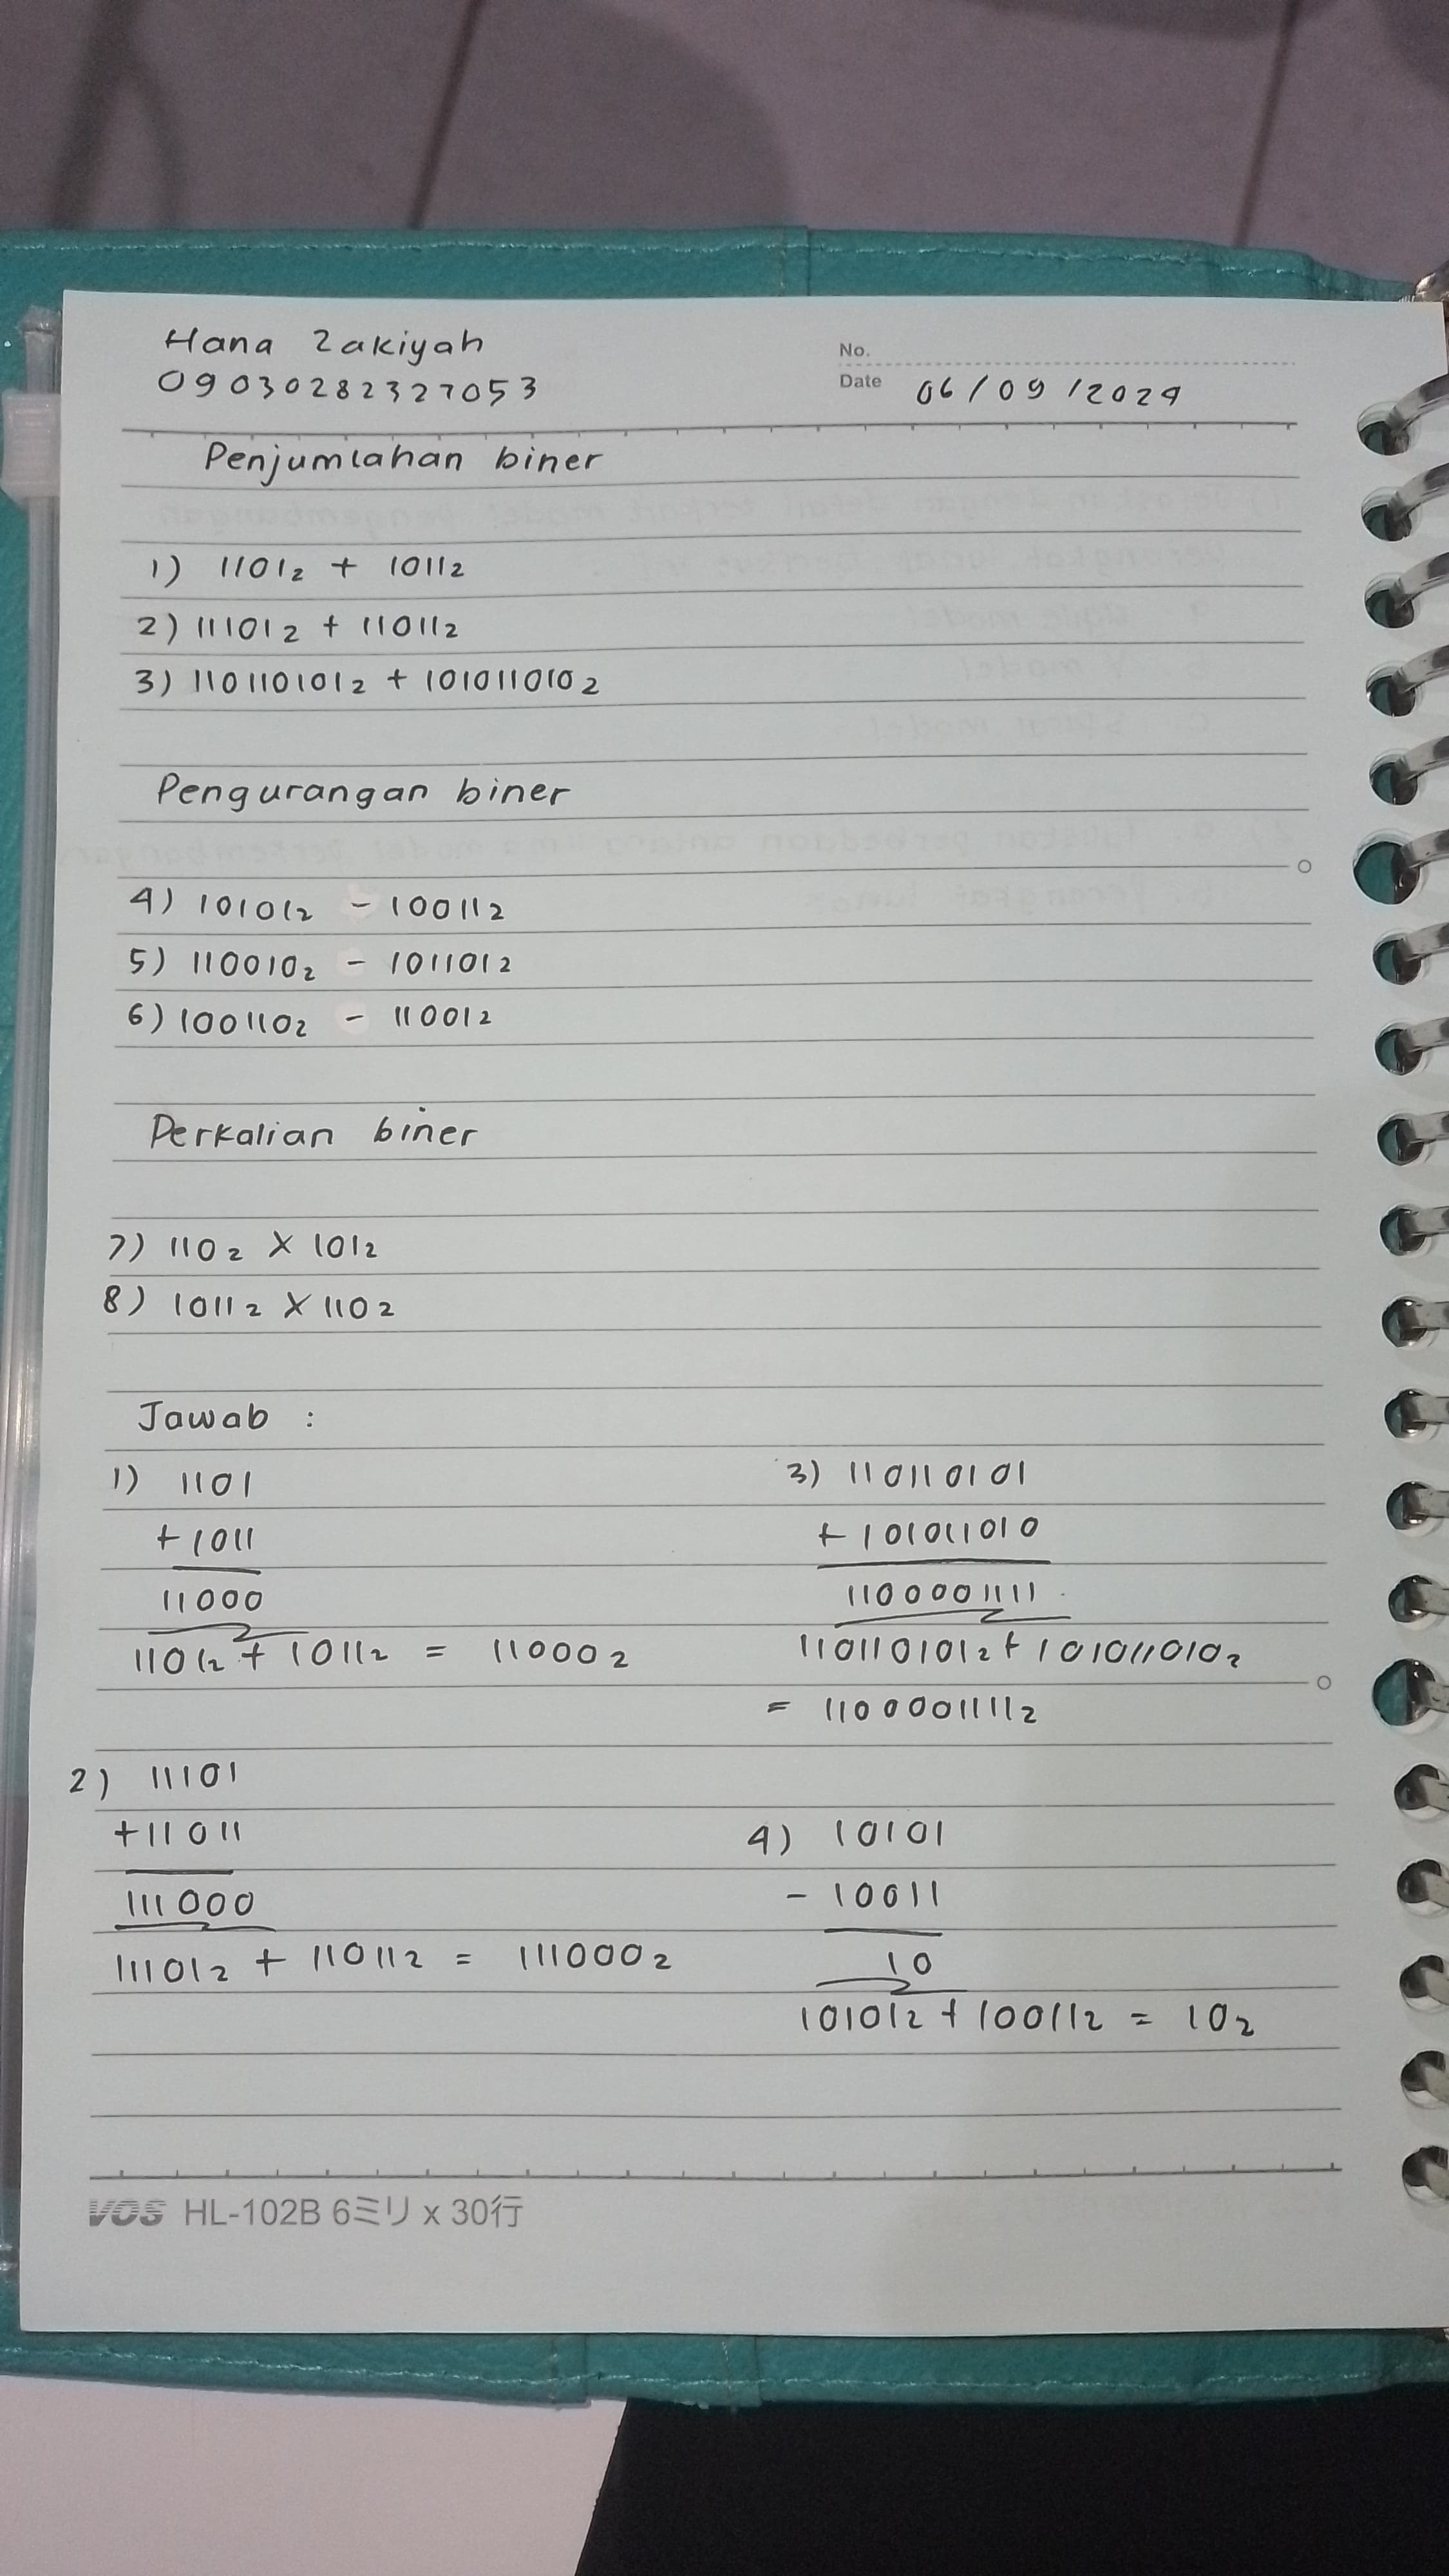 Hana Zakiyah
09030282327053
No.
Date 06/09/2024
Penjumlahan biner
1) 1101₂ + 1011₂
2) 11101₂ + 11011₂
3) 110110101₂ + 101011010₂
Pengurangan biner
4) 10101₂ - 10011₂
5) 110010₂ - 101101₂
6) 100110₂ - 11001₂
Perkalian biner
7) 110₂ X 101₂
8) 1011₂ X 110₂
Jawab :
1) 1101
+ 1011
11000
1101₂ + 1011₂ = 11000₂
2) 11101
+ 11011
111000
11101₂ + 11011₂ = 111000₂
3) 110110101
+ 101011010
1100001111
110110101₂ + 101011010₂
= 1100001111₂
4) 10101
- 10011
10
10101₂ + 10011₂ = 10₂
VOS HL-102B 6ミリ x 30行